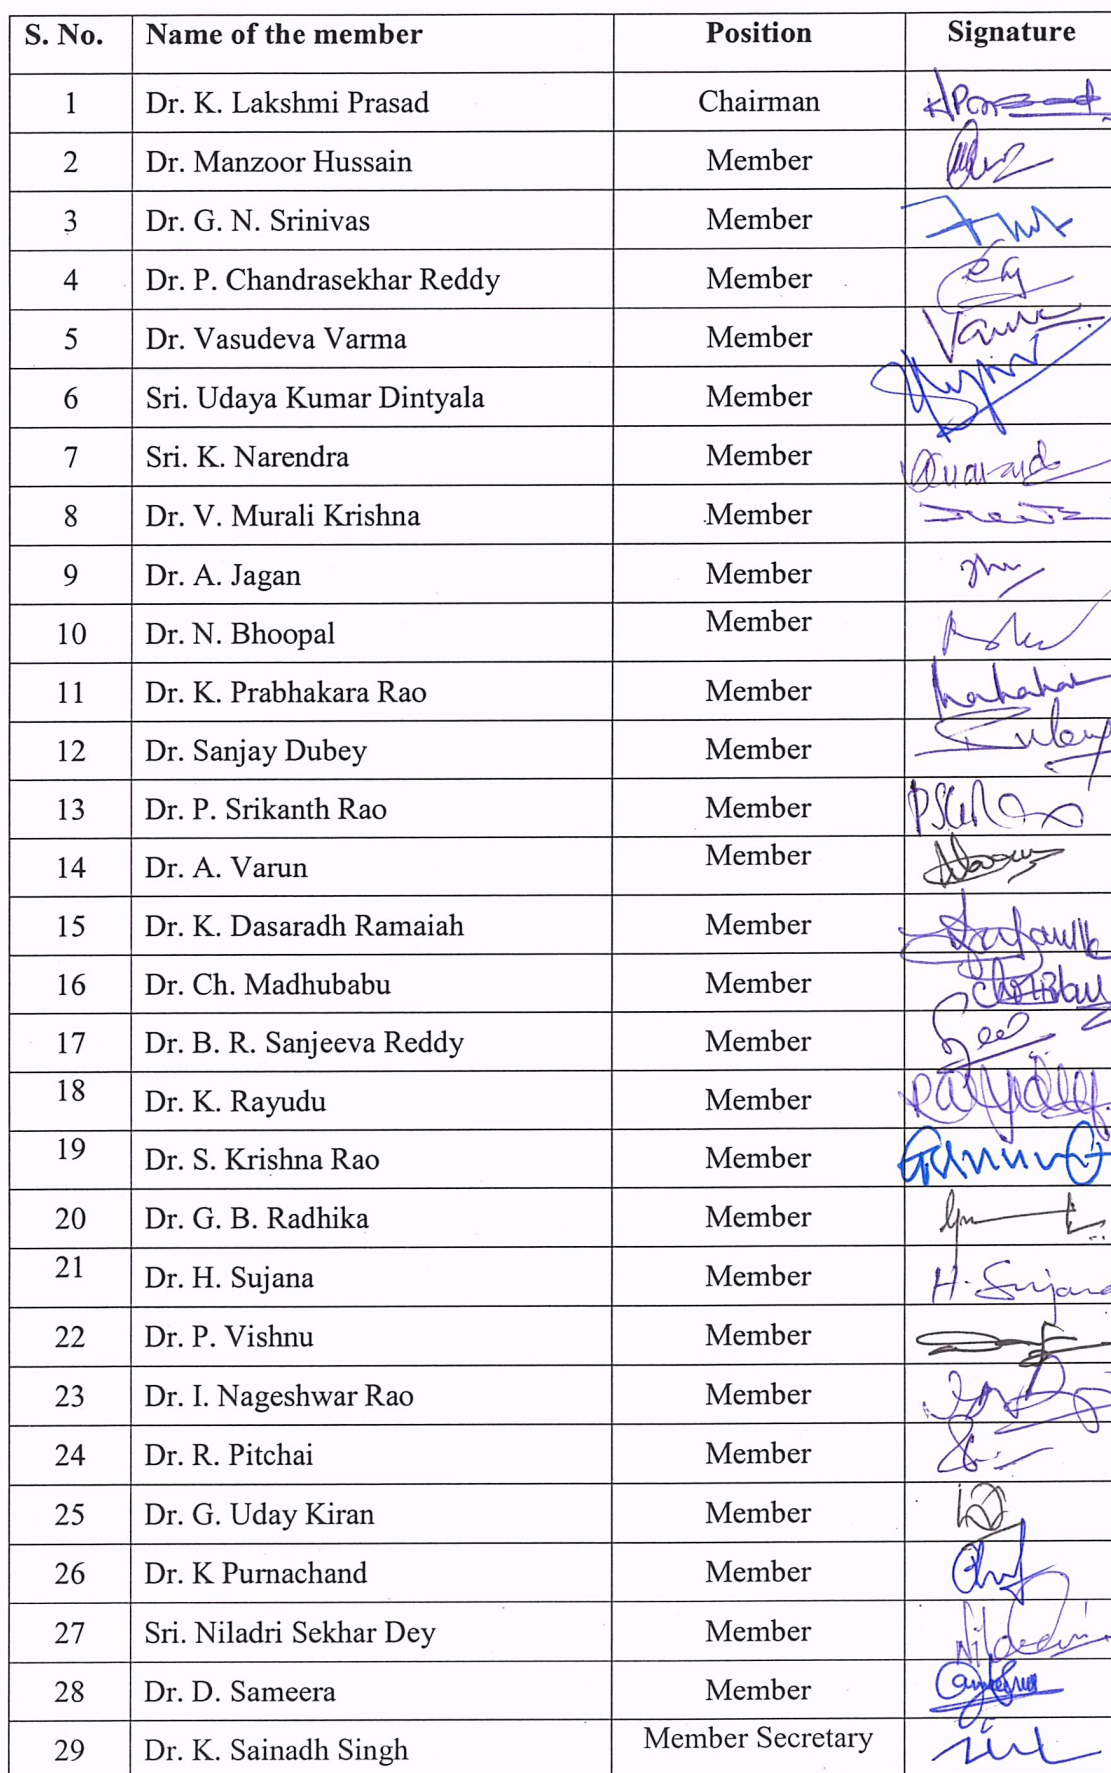 S. No. Name of the member Position Signature
1 Dr. K. Lakshmi Prasad Chairman
2 Dr. Manzoor Hussain Member
3 Dr. G. N. Srinivas Member
4 Dr. P. Chandrasekhar Reddy Member
5 Dr. Vasudeva Varma Member
6 Sri. Udaya Kumar Dintyala Member
7 Sri. K. Narendra Member
8 Dr. V. Murali Krishna Member
9 Dr. A. Jagan Member
10 Dr. N. Bhoopal Member
11 Dr. K. Prabhakara Rao Member
12 Dr. Sanjay Dubey Member
13 Dr. P. Srikanth Rao Member
14 Dr. A. Varun Member
15 Dr. K. Dasaradh Ramaiah Member
16 Dr. Ch. Madhubabu Member
17 Dr. B. R. Sanjeeva Reddy Member
18 Dr. K. Rayudu Member
19 Dr. S. Krishna Rao Member
20 Dr. G. B. Radhika Member
21 Dr. H. Sujana Member H. Sujana
22 Dr. P. Vishnu Member
23 Dr. I. Nageshwar Rao Member
24 Dr. R. Pitchai Member
25 Dr. G. Uday Kiran Member
26 Dr. K Purnachand Member
27 Sri. Niladri Sekhar Dey Member
28 Dr. D. Sameera Member
29 Dr. K. Sainadh Singh Member Secretary